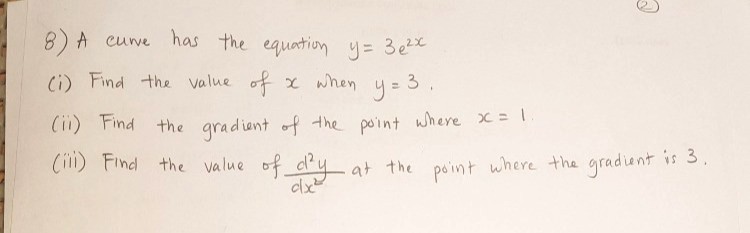 2
8) A curve has the equation y = 3e²ˣ
(i) Find the value of x when y = 3.
(ii) Find the gradient of the point where x = 1.
(iii) Find the value of d²y/dx² at the point where the gradient is 3.